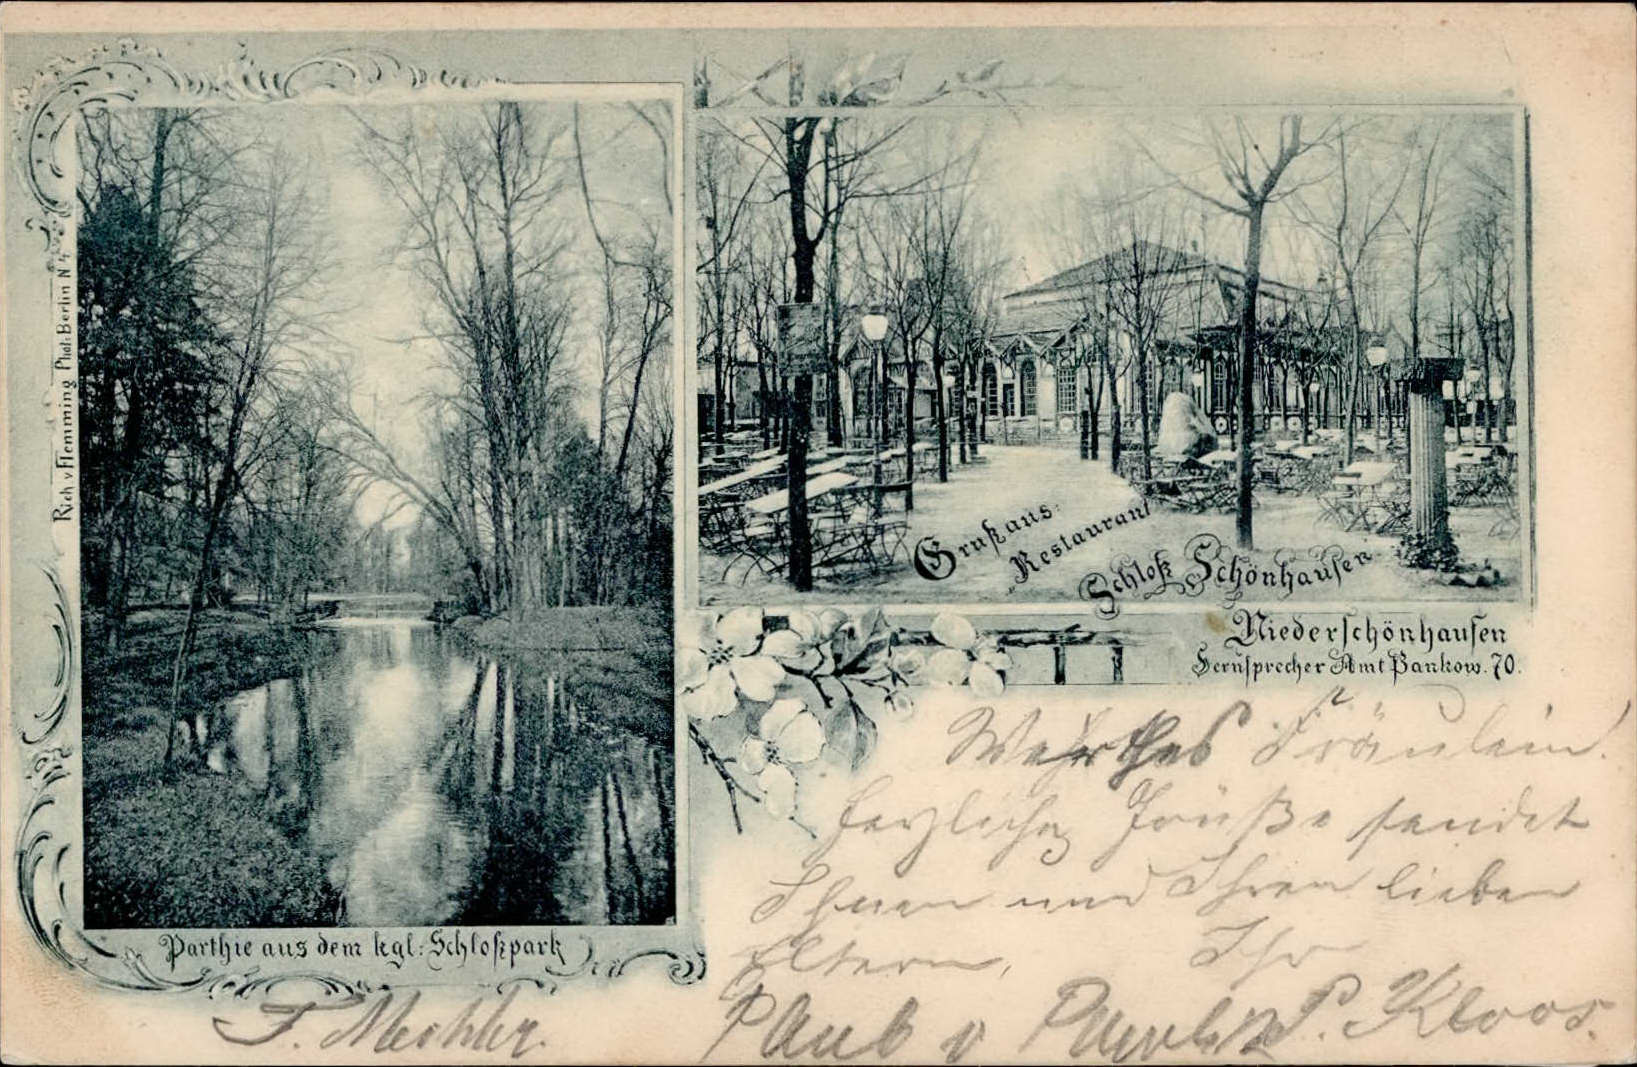 Rich v Flemming Phot: Berlin N 4
Parthie aus dem kgl: Schloßpark
Gruß aus:
Restaurant
Schloß Schönhausen
Niederschönhausen
Fernsprecher Amt Pankow. 70.
Werthes Fräulein.
Herzliche Grüße sendet
Ihnen und Ihren lieben
Eltern, Ihr
P. Kloos.
F. Mechler.